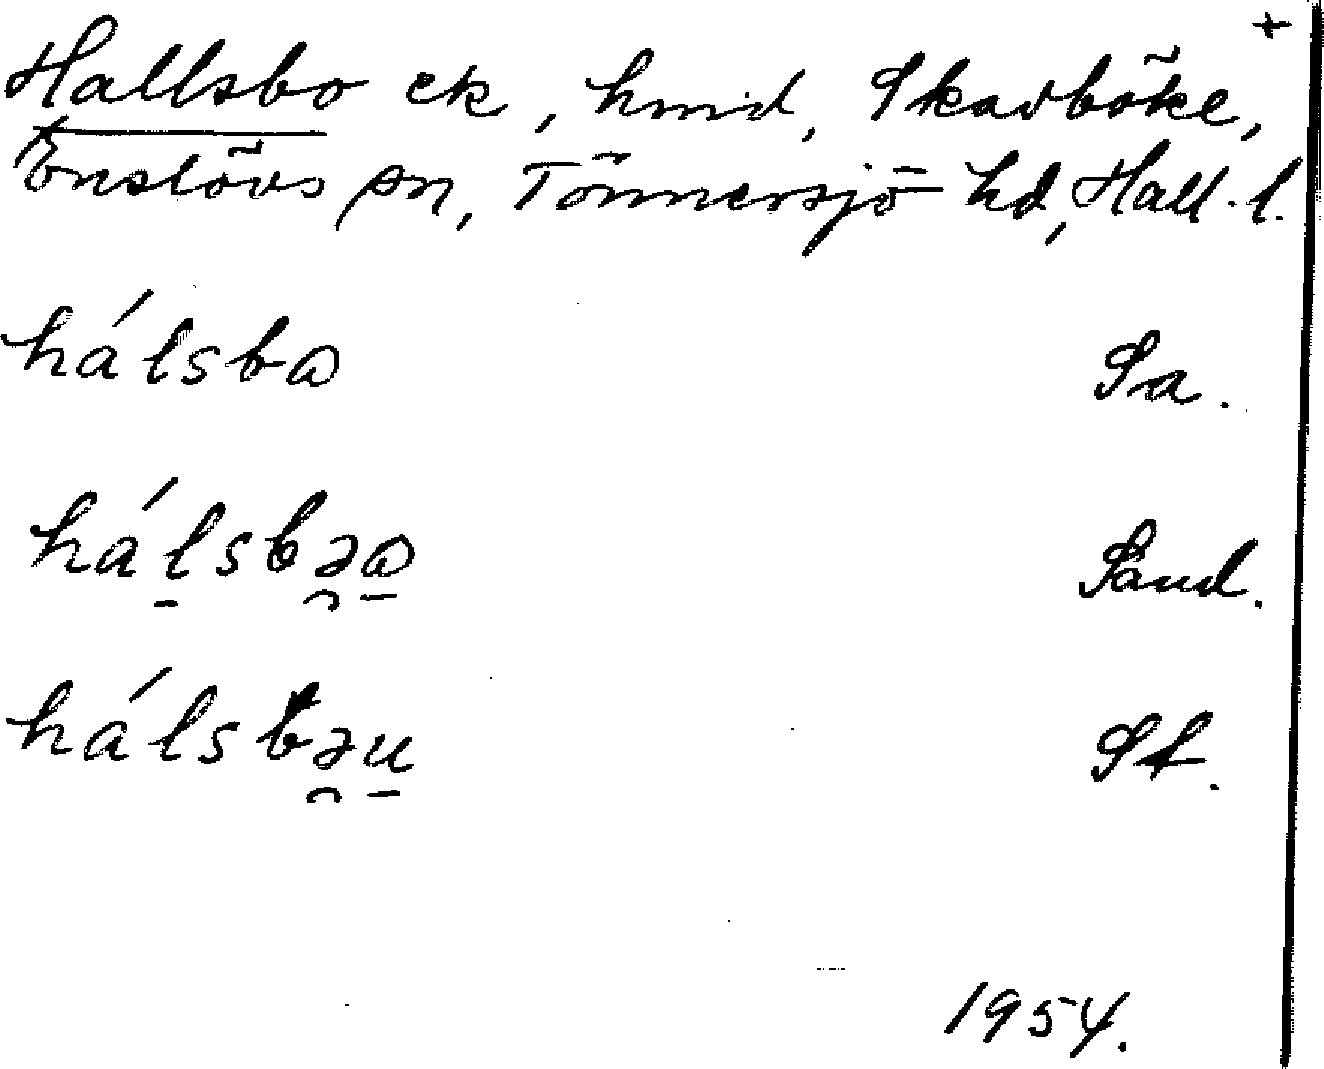 +
Hallsbo ek, hmd, Skavböke,
Enslövs sn, Tönnersjö hd, Hall. l.
hálsbꞷ Sa.
hál̠sbə̯ꞷ̠ Sand.
hálsbə̯u̠ St.
1954.